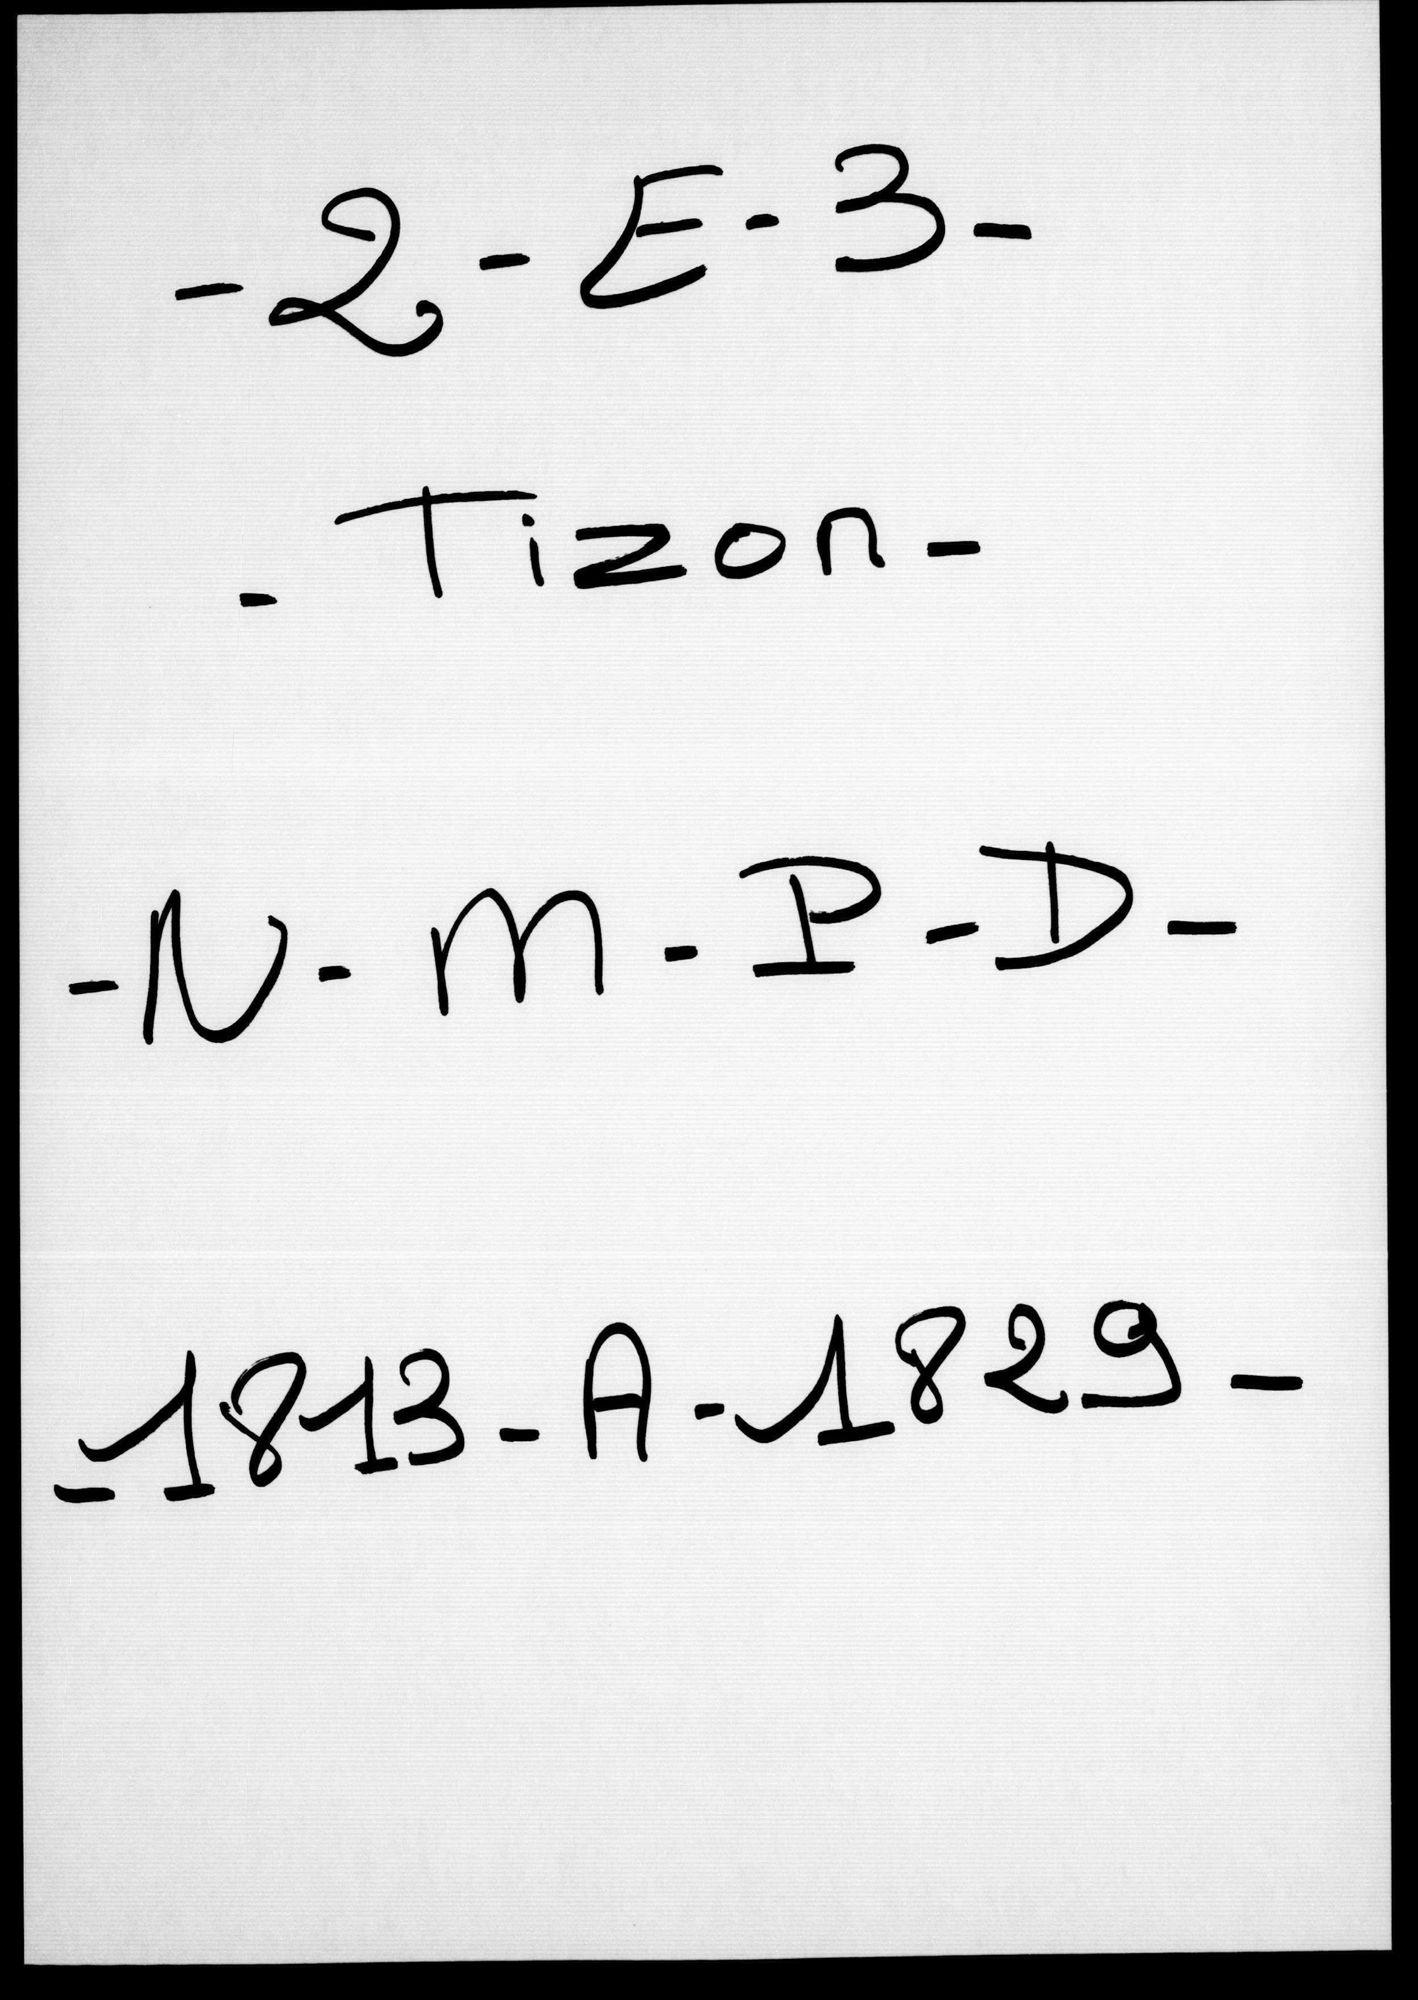 - 2 - E - 3 -
- Tizon -
- N - M - P - D -
- 1813 - A - 1829 -